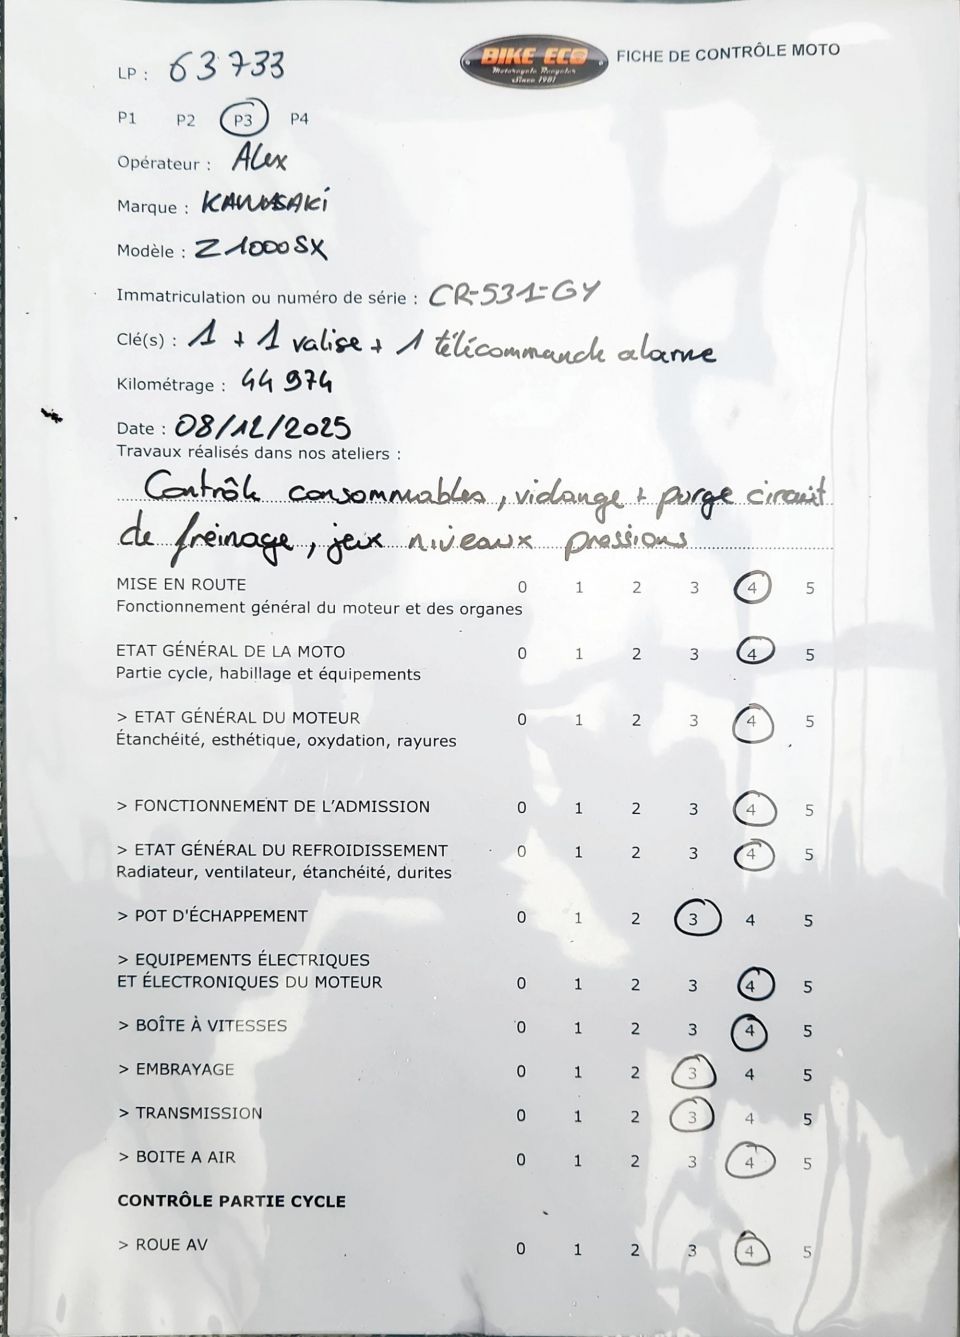 LP : 63733
BIKE ECO
Motorcycle Recycler
Since 1981
FICHE DE CONTRÔLE MOTO
P1 P2 P3 P4
Opérateur : Alex
Marque : KAWASAKi
Modèle : Z1000SX
Immatriculation ou numéro de série : CR-531-GY
Clé(s) : 1 + 1 valise + 1 télécommande alarme
Kilométrage : 44 974
Date : 08/12/2025
Travaux réalisés dans nos ateliers :
Contrôle consommables, vidange + purge circuit
de freinage, jeux niveaux pressions
MISE EN ROUTE 0 1 2 3 4 5
Fonctionnement général du moteur et des organes
ETAT GÉNÉRAL DE LA MOTO 0 1 2 3 4 5
Partie cycle, habillage et équipements
> ETAT GÉNÉRAL DU MOTEUR 0 1 2 3 4 5
Étanchéité, esthétique, oxydation, rayures
> FONCTIONNEMENT DE L'ADMISSION 0 1 2 3 4 5
> ETAT GÉNÉRAL DU REFROIDISSEMENT 0 1 2 3 4 5
Radiateur, ventilateur, étanchéité, durites
> POT D'ÉCHAPPEMENT 0 1 2 3 4 5
> EQUIPEMENTS ÉLECTRIQUES
ET ÉLECTRONIQUES DU MOTEUR 0 1 2 3 4 5
> BOÎTE À VITESSES 0 1 2 3 4 5
> EMBRAYAGE 0 1 2 3 4 5
> TRANSMISSION 0 1 2 3 4 5
> BOITE A AIR 0 1 2 3 4 5
CONTRÔLE PARTIE CYCLE
> ROUE AV 0 1 2 3 4 5